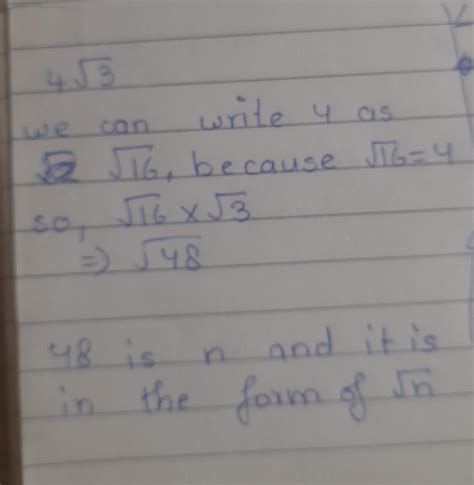 4√3
we can write 4 as
√16, because √16=4
so, √16 × √3
⇒ √48
48 is n and it is
in the form of √n